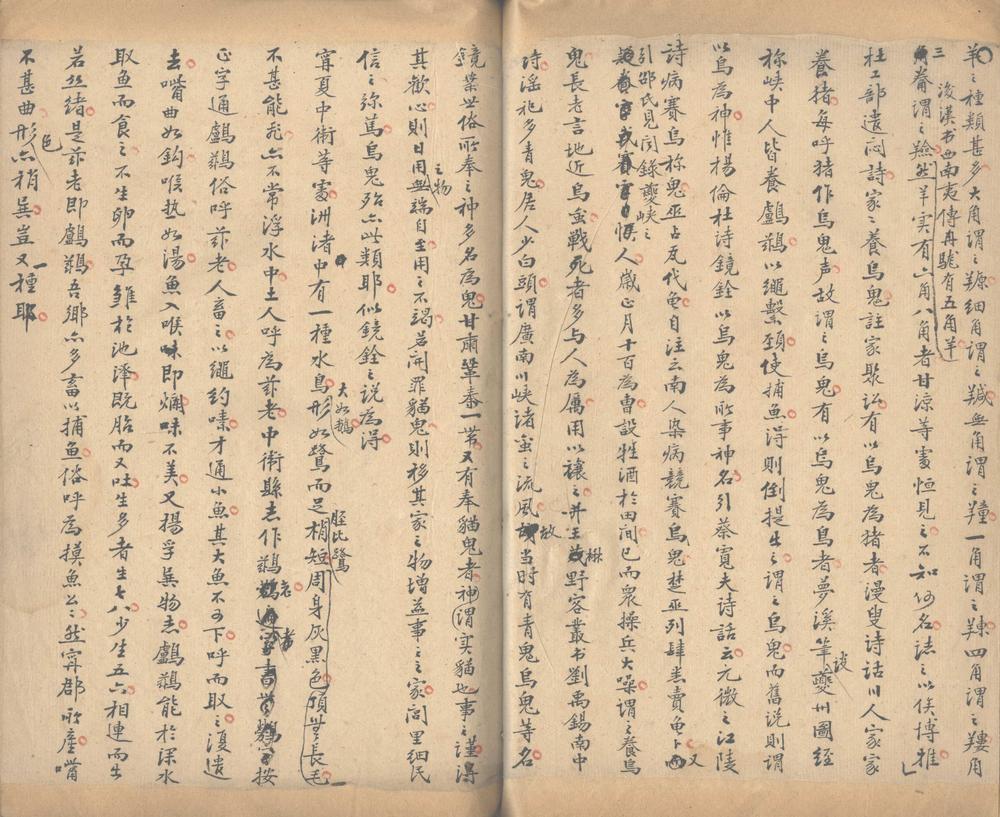 羊之種類甚多大角謂之羱細角謂之羬無角謂之䍮一角謂之𦍕四角謂之羺角
三觠謂之羷然羊实有六角八角者甘涼等處恒見之不知何名誌之以俟博雅
後漢书西南夷傳冉駹有五角羊
杜工部遣闷詩家之養烏鬼註家聚訟有以烏鬼為猪者漫叟诗话川人家家
養猪每呼猪作烏鬼声故謂之烏鬼有以烏鬼為鳥者夢溪筆談夔州圖經
称峡中人皆養鸕鷀以繩繫頚使捕魚得則倒提出之謂之烏鬼而舊说則謂
以烏為神惟楊倫杜詩鏡銓以烏鬼為所事神名引蔡寬夫诗話云元微之江陵
诗病賽烏称鬼巫占瓦代龟自注云南人染病競賽烏鬼楚巫列肆悉賣龟卜又
引邵氏見闻録夔峡之人歲正月十百為曹設牲酒於田间已而衆操兵大噪謂之養烏
鬼長老言地近烏蛮戰死者多与人為厲用以禳之并王楙野客叢书劉禹錫南中
诗谣祀多青鬼居人少白頭謂廣南川峡诸蛮之流風故當时有青鬼烏鬼等名
鏡業世俗所奉之神多名為鬼甘肅鞏秦一带又有奉貓鬼者神謂实貓也事之谨得
其歡心則日用之物無端自至用之不竭若開罪貓鬼則移其家之物增益事之之家闾里细民
信之弥篤烏鬼殆亦此類耶似鏡銓之说為得
甯夏中衛等處洲渚中有一種水鳥形如鵞大如鵝而足稍短脛比鵞周身灰黑色項無長毛
不甚能飛亦不常浮水中土人呼為兹老中衛縣志作鷀老者按
正字通鸕鷀俗呼兹老人畜之以繩約嗉才通小魚其大魚不可下呼而取之复遣
去嘴曲如鈎喉热如湯魚入喉即爛味不美又揚孚異物志鸕鷀能於深水
取魚而食之不生卵而孕雏於池泽既胎而又吐生多者生七八少生五六相連而出
若丝緒是兹老即鸕鷀吾鄉亦多畜以捕魚俗呼為摸魚公然甯郡所產嘴
不甚曲形色亦稍異豈又一種耶